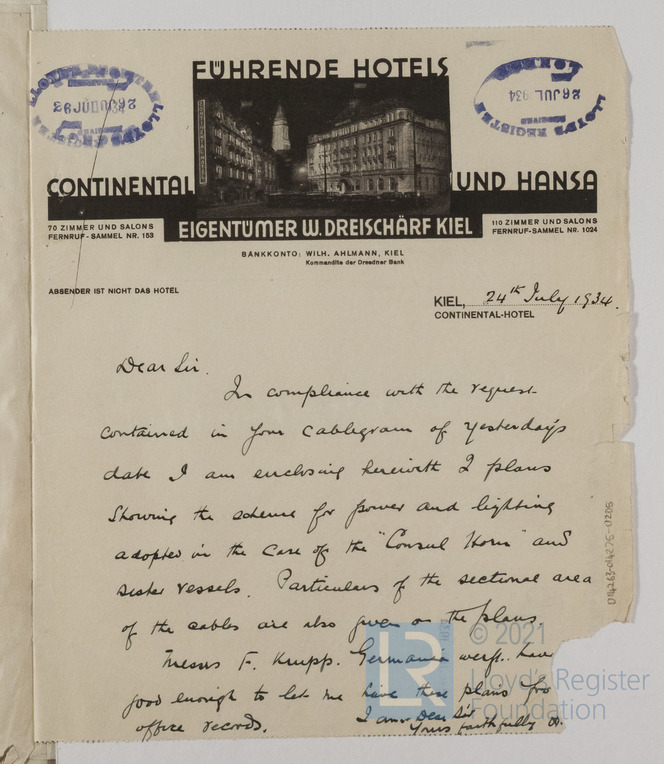 FÜHRENDE HOTELS
CONTINENTAL UND HANSA
70 ZIMMER UND SALONS
FERNRUF-SAMMEL NR. 153
EIGENTÜMER W. DREISCHÄRF KIEL
110 ZIMMER UND SALONS
FERNRUF-SAMMEL NR. 1024
BANKKONTO: WILH. AHLMANN, KIEL
Kommandite der Dresdner Bank
LLOYD'S REGISTER
RECEIVED
26 JUL 934
ABSENDER IST NICHT DAS HOTEL
KIEL, 24th July 1934.
CONTINENTAL-HOTEL
Dear Sir.
In compliance with the request
contained in your cablegram of yesterday's
date I am enclosing herewith 2 plans
showing the scheme for power and lighting
adopted in the case of the "Consul Horn" and
sister vessels. Particulars of the sectional area
of the cables are also given on the plans.
Messrs F. Krupp. Germania werft. have
good enough to let me have these plans for
office records.
I am Dear Sir
Yours faithfully
014263-014275-0206
LR
© 2021
Lloyd's Register
Foundation